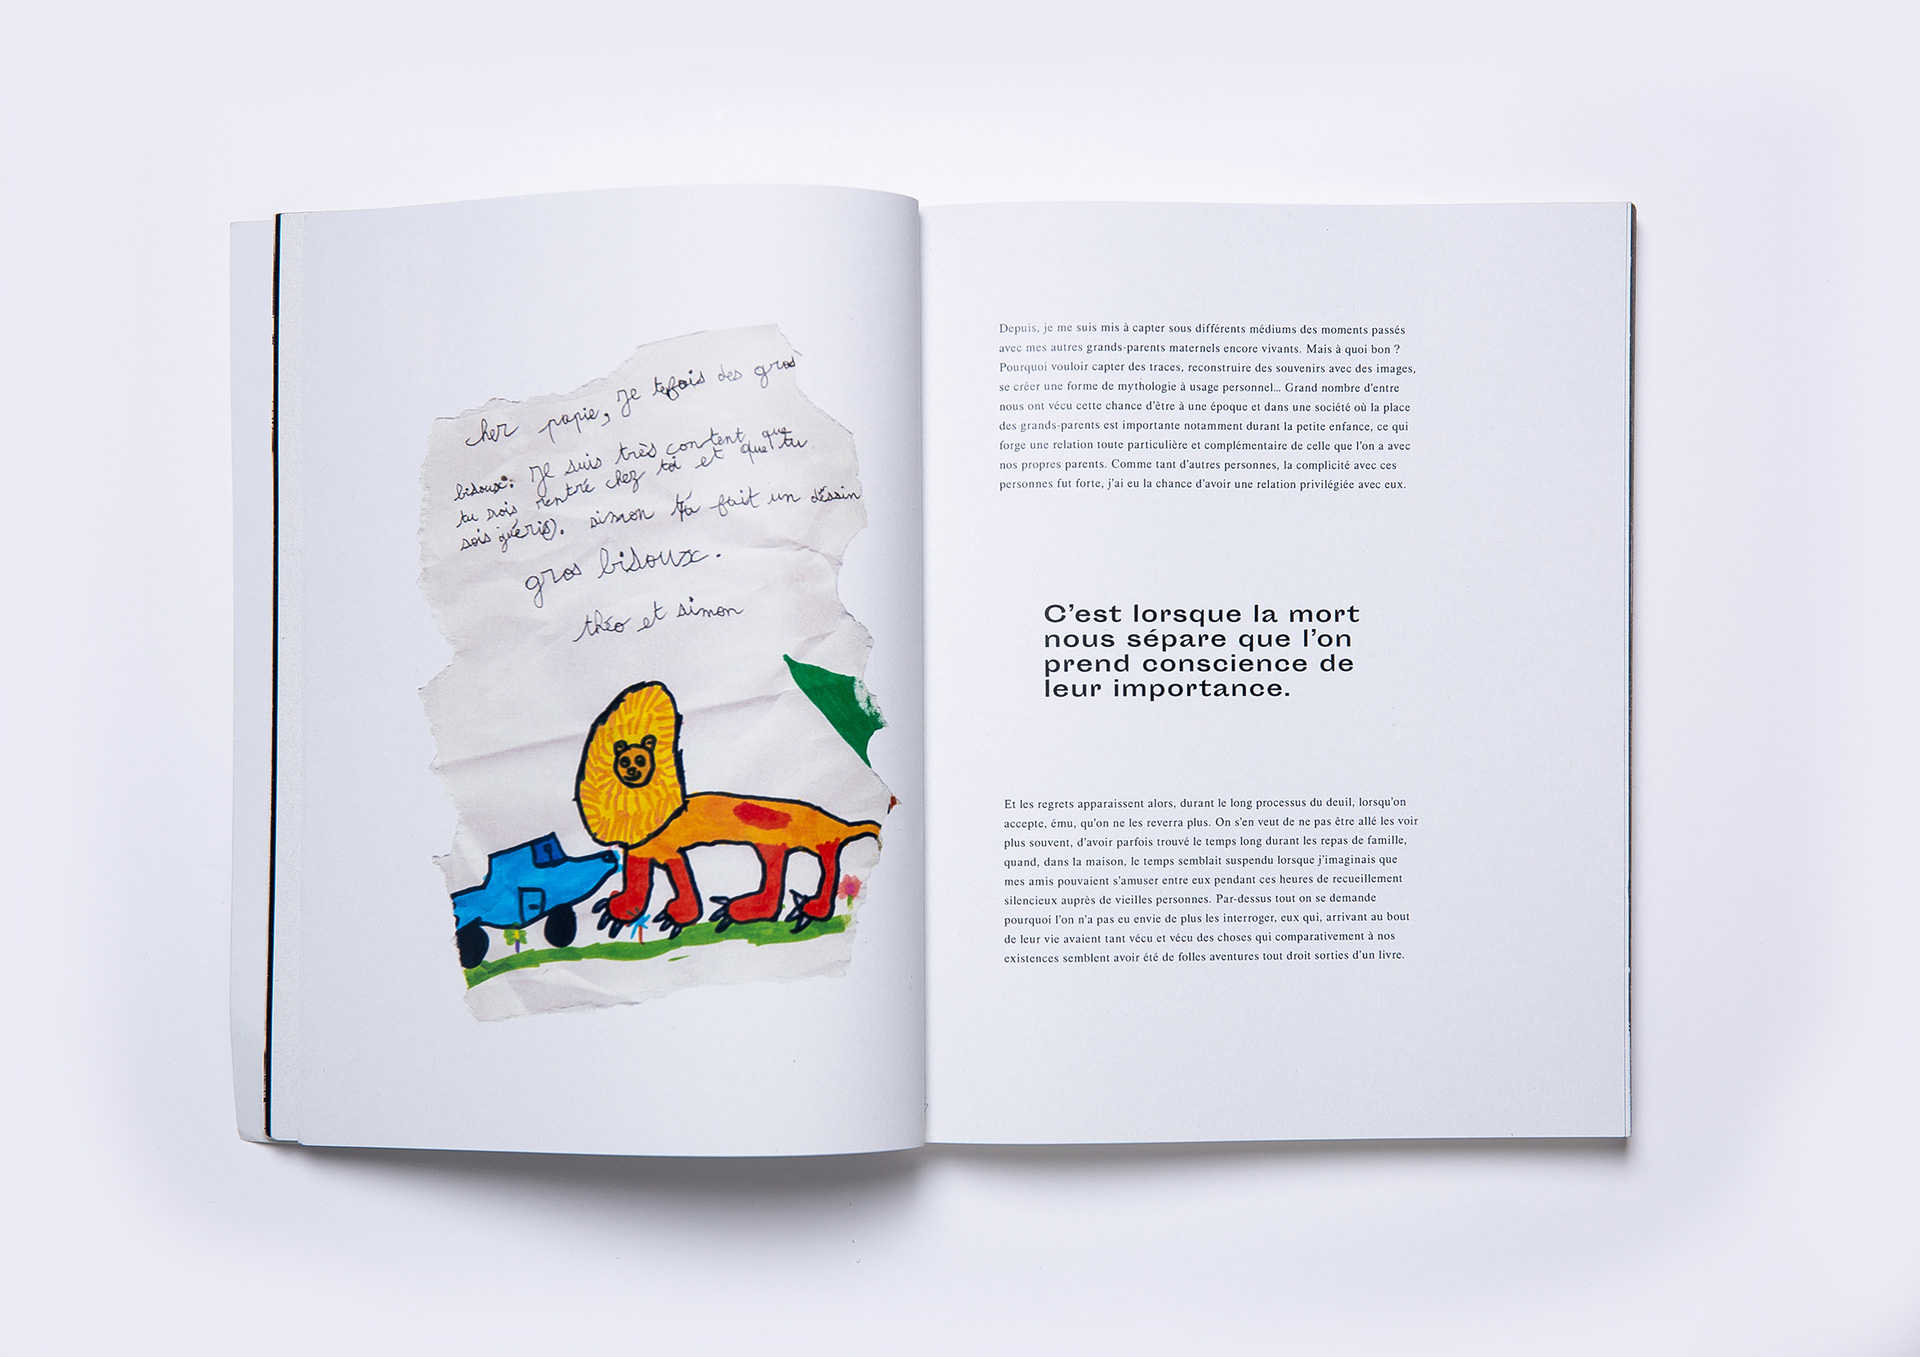 cher papie, je te fais des gros
bisoux. Je suis très content que
tu sois rentré chez toi et que tu
sois guéris). simon t'a fait un déssin
gros bisoux.
théo et simon
Depuis, je me suis mis à capter sous différents médiums des moments passés
avec mes autres grands-parents maternels encore vivants. Mais à quoi bon ?
Pourquoi vouloir capter des traces, reconstruire des souvenirs avec des images,
se créer une forme de mythologie à usage personnel... Grand nombre d'entre
nous ont vécu cette chance d'être à une époque et dans une société où la place
des grands-parents est importante notamment durant la petite enfance, ce qui
forge une relation toute particulière et complémentaire de celle que l'on a avec
nos propres parents. Comme tant d'autres personnes, la complicité avec ces
personnes fut forte, j'ai eu la chance d'avoir une relation privilégiée avec eux.
C'est lorsque la mort
nous sépare que l'on
prend conscience de
leur importance.
Et les regrets apparaissent alors, durant le long processus du deuil, lorsqu'on
accepte, ému, qu'on ne les reverra plus. On s'en veut de ne pas être allé les voir
plus souvent, d'avoir parfois trouvé le temps long durant les repas de famille,
quand, dans la maison, le temps semblait suspendu lorsque j'imaginais que
mes amis pouvaient s'amuser entre eux pendant ces heures de recueillement
silencieux auprès de vieilles personnes. Par-dessus tout on se demande
pourquoi l'on n'a pas eu envie de plus les interroger, eux qui, arrivant au bout
de leur vie avaient tant vécu et vécu des choses qui comparativement à nos
existences semblent avoir été de folles aventures tout droit sorties d'un livre.